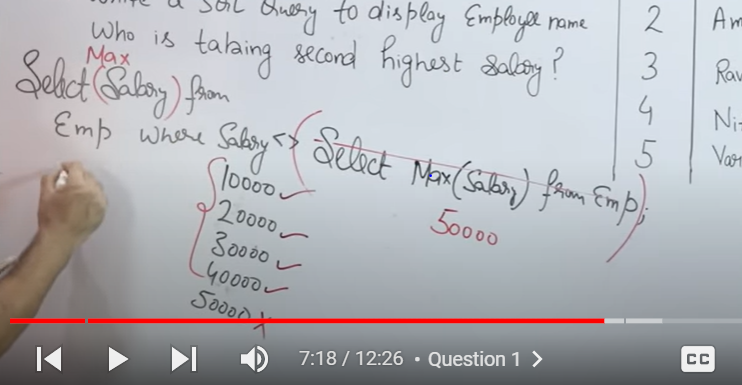 a SQL Query to display Employee name 2 Am
Who is taking second highest salary? 3 Rav
Max
Select (Salary) from 4 Ni
Emp where Salary <> (Select Max(Salary) from Emp); 5 Var
10000
20000 50000
30000
40000
50000 X
7:18 / 12:26 • Question 1 >
CC